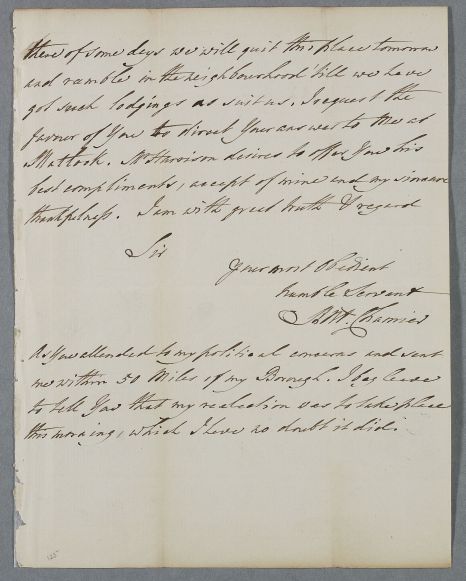 there of some days we will quit this place tomorrow
and ramble in the neighbourhood 'till we have
got such lodgings as suit us. I request the
favour of You to direct Your answer to Me at
Matlock. Mr Harrison desires to offer You his
best compliments, accept of mine and my sincere
thankfulness. I am with great truth & regard
Sir
Your most Obedient
humble Servant
Ant. Chamier
As You attended to my political concerns and sent
me within 50 Miles of my Borough. I beg leave
to tell You that my reelection was to take place
this morning, which I have no doubt it did.
125